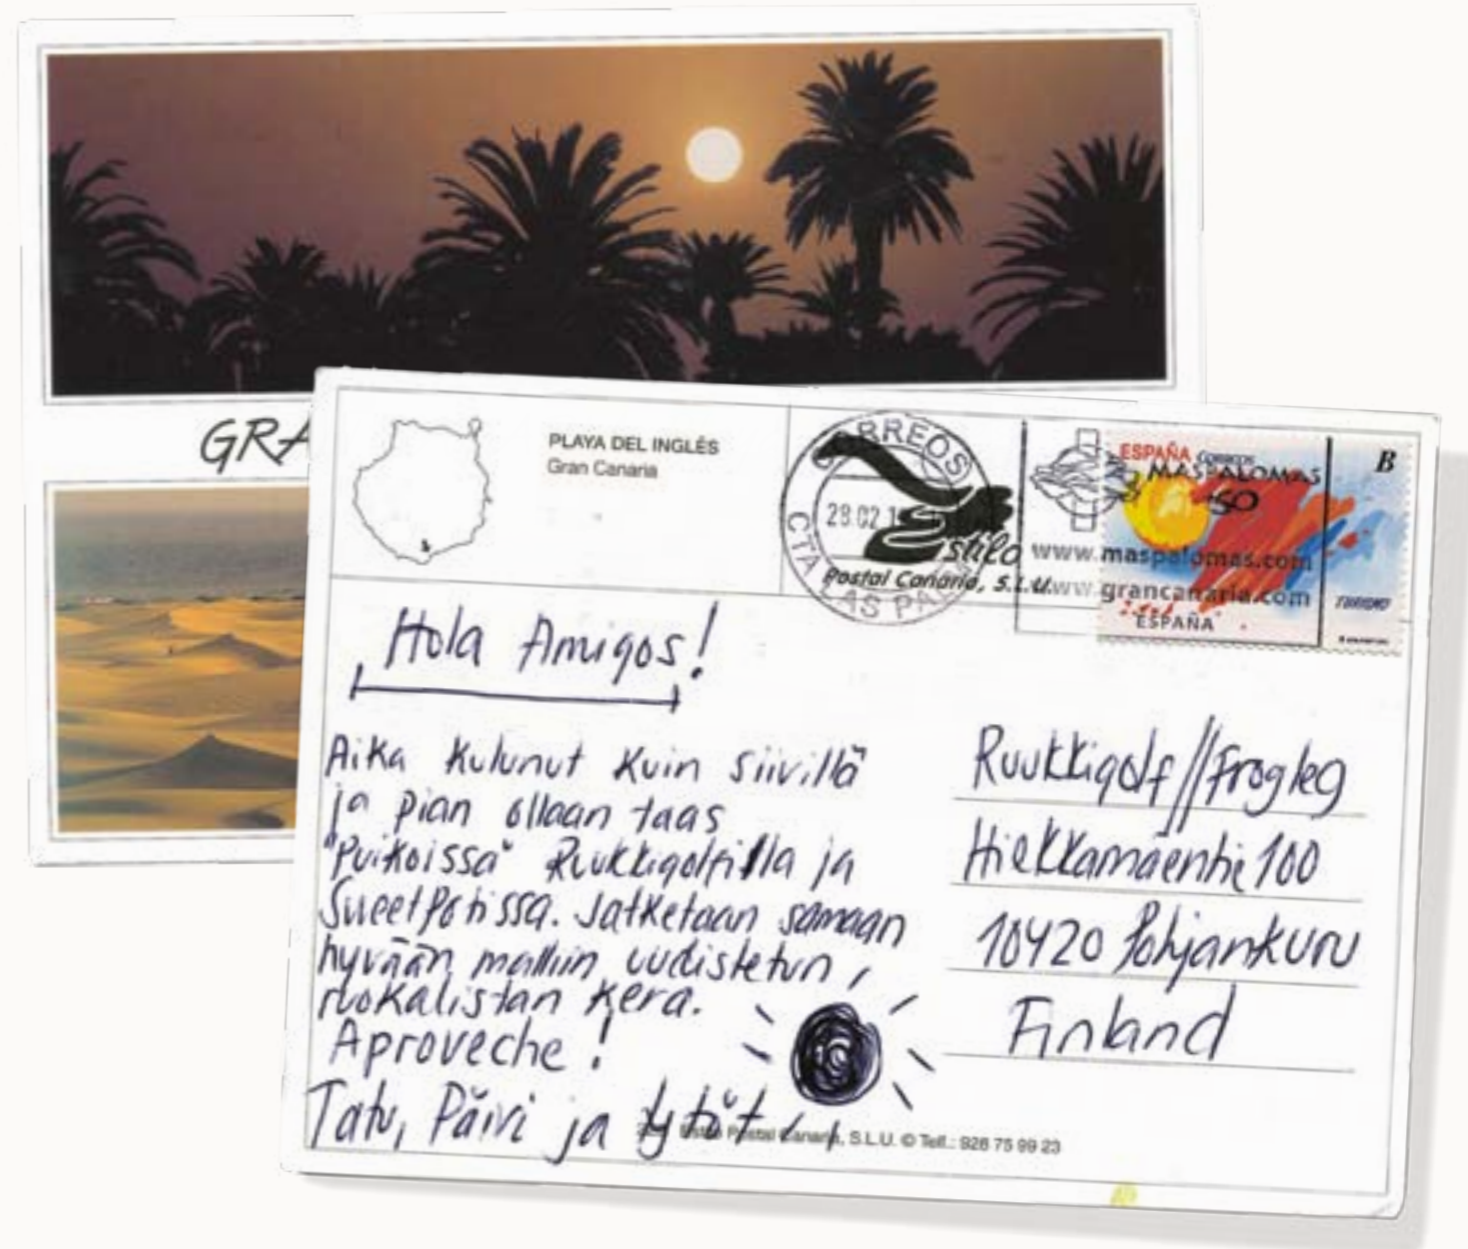 GRA
PLAYA DEL INGLÉS
Gran Canaria
CORREOS
28.02.1
CTA LAS PA
Estilo
Postal Canaria, S.L.U.
ESPAÑA CORREOS
MASPALOMAS
50
B
www.maspalomas.com
www.grancanaria.com
TURISMO
ESPAÑA
Hola Amigos!
Aika kulunut kuin siivillä
ja pian ollaan taas
"Puikoissa" Ruukkigolfilla ja
SweetPotissa. Jatketaan samaan
hyvään malliin, uudistetun
ruokalistan kera.
Aproveche!
Tatu, Päivi ja tytöt
Ruukkigolf//Frogleg
Hiekkamäentie 100
10420 Pohjankuru
Finland
Postal Canaria, S.L.U. © Telf.: 928 75 99 23